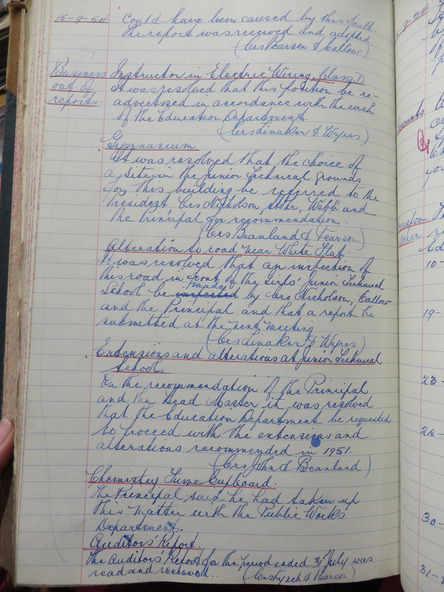 15-9-54 Could have been caused by this fault.
The report was received and adopted
(Crs Pearson & Callow)
Business Instructor in Electric Wiring (Class I)
out of It was resolved that this position be re-
reports. advertised in accordance with the wish
of the Education Department.
(Crs Linaker & Wypes.)
Gymnasium
It was resolved that the choice of
a site in the Junior Technical grounds
for this building be referred to the
President Crs Nicholson, Webb and
the Principal for recommendation.
(Crs Beanland & Pearson)
Alteration to road near White Flat
It was resolved that an inspection of
this road in front of the Girls' Junior Technical
School be made by Crs Nicholson, Callow
and the Principal and that a report be
submitted at the next meeting
(Crs Linaker & Wypes)
Extensions and alterations at Junior Technical
School.
On the recommendation of the Principal
and the Head Master it was resolved
that the Education Department be requested
to proceed with the extensions and
alterations recommended in 1951.
(Crs & Beanland)
Chemistry Fume Cupboard.
The Principal said he had taken up
this matter with the Public Works
Department.
Auditors' Report.
The Auditors' Report for the period ended 31st July was
read and received. (Crs Lynch & Pearson)